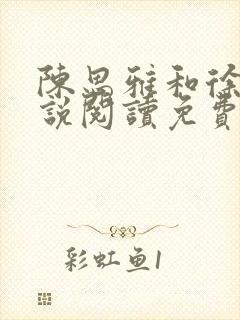 陳思雅和徐
說閱讀免費
彩虹鱼1